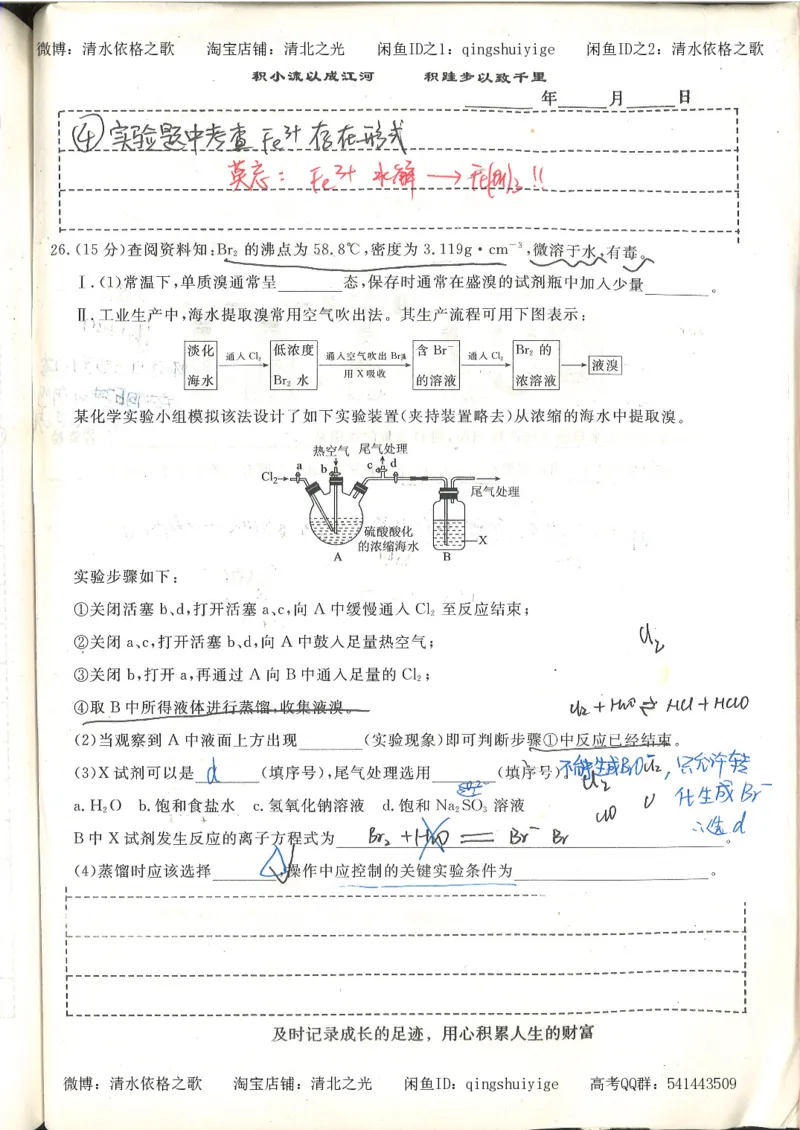 微博：清水依格之歌 淘宝店铺：清北之光 闲鱼ID之1：qingshuiyige 闲鱼ID之2：清水依格之歌
积小流以成江河 积跬步以致千里
年 月 日
④实验题中考查 Fe³⁺ 存在形式
莫忘： Fe³⁺ 水解 → Fe(OH)₃ !!
26.(15分)查阅资料知:Br₂ 的沸点为 58.8℃,密度为 3.119g·cm⁻³,微溶于水,有毒。
Ⅰ.(1)常温下,单质溴通常呈______态,保存时通常在盛溴的试剂瓶中加入少量______。
Ⅱ.工业生产中,海水提取溴常用空气吹出法。其生产流程可用下图表示:
淡化海水 通入 Cl₂ 低浓度Br₂ 水 通入空气吹出 Br₂ 用 X 吸收 含 Br⁻的溶液 通入 Cl₂ Br₂ 的浓溶液 液溴
某化学实验小组模拟该法设计了如下实验装置(夹持装置略去)从浓缩的海水中提取溴。
热空气 尾气处理
a b c d
Cl₂
尾气处理
硫酸酸化
的浓缩海水
X
A B
实验步骤如下:
①关闭活塞 b、d,打开活塞 a、c,向 A 中缓慢通入 Cl₂ 至反应结束;
②关闭 a、c,打开活塞 b、d,向 A 中鼓入足量热空气;
Cl₂
③关闭 b,打开 a,再通过 A 向 B 中通入足量的 Cl₂;
④取 B 中所得液体进行蒸馏,收集液溴。
Cl₂ + H₂O ⇌ HCl + HClO
(2)当观察到 A 中液面上方出现______(实验现象)即可判断步骤①中反应已经结束。
(3)X 试剂可以是 d (填序号),尾气处理选用______(填序号)
不能生成BrO⁻, 只允许转
化生成 Br⁻
∴选 d
a. H₂O b.饱和食盐水 c.氢氧化钠溶液 d.饱和 Na₂SO₃ 溶液
B 中 X 试剂发生反应的离子方程式为 Br₂ + H₂O = Br⁻ Br 。
(4)蒸馏时应该选择______,操作中应控制的关键实验条件为______。
及时记录成长的足迹，用心积累人生的财富
微博：清水依格之歌 淘宝店铺：清北之光 闲鱼ID：qingshuiyige 高考QQ群：541443509